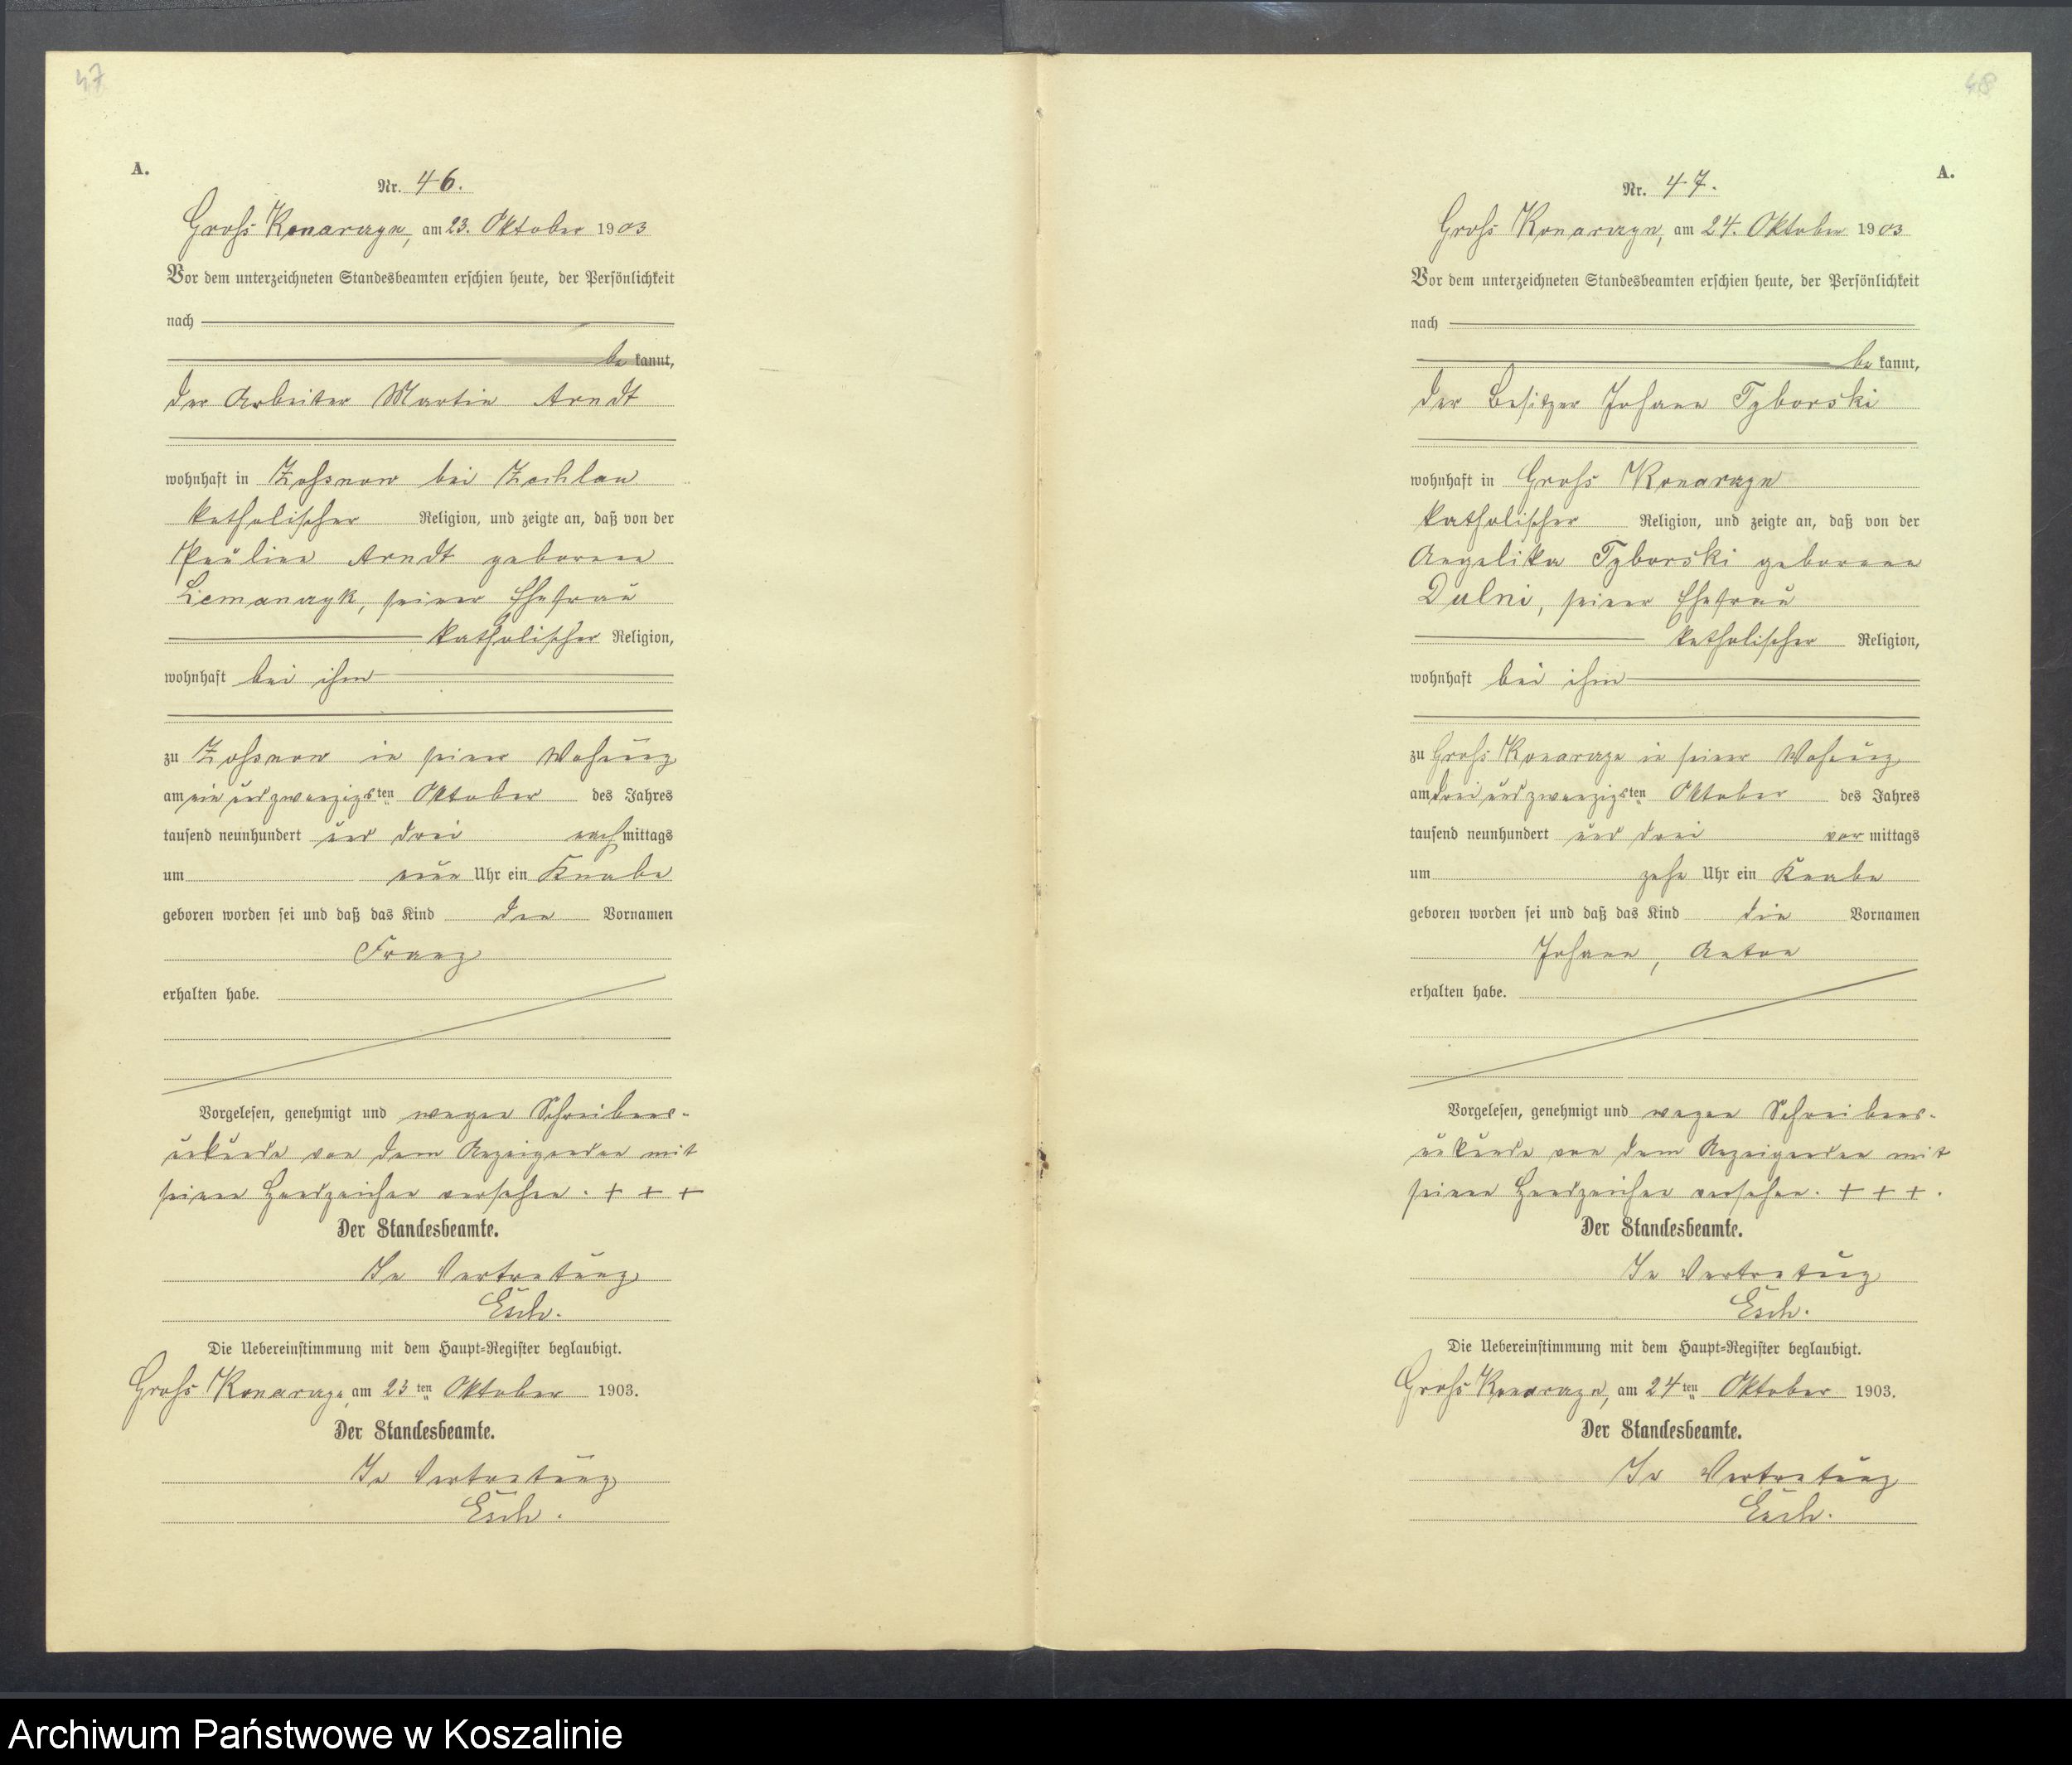 47
A.
Nr. 46.
Groß Konarczyn, am 23. Oktober 1903
Vor dem unterzeichneten Standesbeamten erschien heute, der Persönlichkeit
nach
bekannt,
der Arbeiter Martin Arndt
wohnhaft in Zoßnow bei Zechlau
katholischer Religion, und zeigte an, daß von der
Pauline Arndt geborene
Liemanczyk, seiner Ehefrau
katholischer Religion,
wohnhaft bei ihm
zu Zoßnow in seiner Wohnung
am ein und zwanzigsten Oktober des Jahres
tausend neunhundert und drei nachmittags
um neun Uhr ein Knabe
geboren worden sei und daß das Kind den Vornamen
Franz
erhalten habe.
Vorgelesen, genehmigt und wegen Schreibens-
unkunde von dem Anzeigenden mit
seinen Handzeichen versehen. + + +
Der Standesbeamte.
In Vertretung
Esch.
Die Uebereinstimmung mit dem Haupt-Register beglaubigt.
Groß Konarczyn, am 23ten Oktober 1903.
Der Standesbeamte.
In Vertretung
Esch.
48
A.
Nr. 47.
Groß Konarczyn, am 24. Oktober 1903
Vor dem unterzeichneten Standesbeamten erschien heute, der Persönlichkeit
nach
bekannt,
der Besitzer Johann Tyborski
wohnhaft in Groß Konarczyn
katholischer Religion, und zeigte an, daß von der
Angelika Tyborski geborene
Dulni, seiner Ehefrau
katholischer Religion,
wohnhaft bei ihm
zu Groß Konarczyn in seiner Wohnung
am drei und zwanzigsten Oktober des Jahres
tausend neunhundert und drei vormittags
um zehn Uhr ein Knabe
geboren worden sei und daß das Kind die Vornamen
Johann, Anton
erhalten habe.
Vorgelesen, genehmigt und wegen Schreibens-
unkunde von dem Anzeigenden mit
seinen Handzeichen versehen. + + +.
Der Standesbeamte.
In Vertretung
Esch.
Die Uebereinstimmung mit dem Haupt-Register beglaubigt.
Groß Konarczyn, am 24ten Oktober 1903.
Der Standesbeamte.
In Vertretung
Esch.
Archiwum Państwowe w Koszalinie